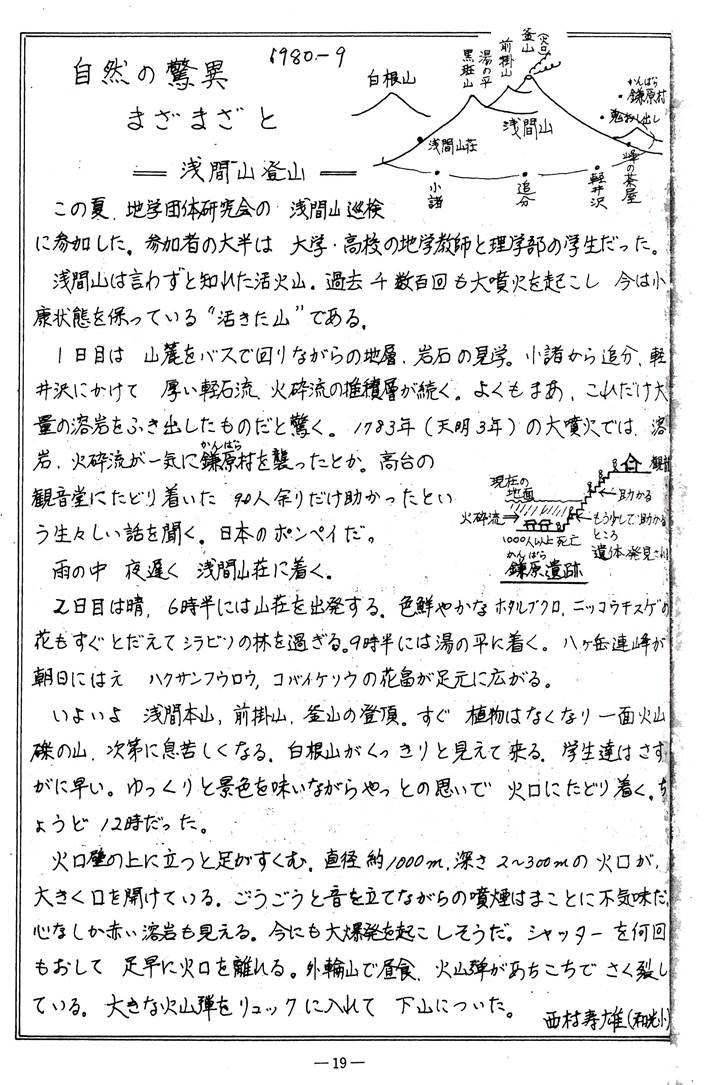 1980-9
自然の驚異
まざまざと
浅間山登山
白根山
黒斑山
湯の平
前掛山
釜山
(火口)
浅間山
かんばら
鎌原村
鬼おし出し
浅間山荘
小諸
追分
軽井沢
峰の茶屋
この夏、地学団体研究会の 浅間山巡検
に参加した。参加者の大半は 大学・高校の地学教師と理学部の学生だった。
浅間山は言わずと知れた活火山。過去 千数百回も大噴火を起こし 今は小
康状態を保っている“活きた山”である。
1日目は 山麓をバスで回りながらの地層、岩石の見学。小諸から追分、軽
井沢にかけて 厚い軽石流、火砕流の堆積層が続く。よくもまあ、これだけ大
量の溶岩をふき出したものだと驚く。1783年(天明3年)の大噴火では、溶
かんばら
岩、火砕流が一気に鎌原村を襲ったとか。高台の
観音堂にたどり着いた 90人余りだけ助かったとい
う生々しい話を聞く。日本のポンペイだ。
雨の中 夜遅く 浅間山荘に着く。
観音
現在の
地面
助かる
火砕流
もう少しで助かる
ところ
1000人以上死亡
遺体発見され
かんばら
鎌原遺跡
2日目は晴、6時半には山荘を出発する。色鮮やかなホタルブクロ、ニッコウキスゲの
花もすぐとだえてシラビソの林を過ぎる。9時半には湯の平に着く。八ヶ岳連峰が
朝日にはえ ハクサンフウロウ、コバイケソウの花畠が足元に広がる。
いよいよ 浅間本山、前掛山、釜山の登頂。すぐ 植物はなくなり一面火山
礫の山、次第に息苦しくなる。白根山がくっきりと見えて来る。学生達はさす
がに早い。ゆっくりと景色を味いながらやっとの思いで 火口にたどり着く。ち
ょうど 12時だった。
火口壁の上に立つと足がすくむ。直径約1000m、深さ2~300mの火口が、
大きく口を開けている。ごうごうと音を立てながらの噴煙はまことに不気味だ。
心なしか赤い溶岩も見える。今にも大爆発を起こしそうだ。シャッターを何回
もおして 足早に火口を離れる。外輪山で昼食、火山弾があちこちでさく裂し
ている。大きな火山弾をリュックに入れて 下山についた。
西村寿雄(和光小)
—19—